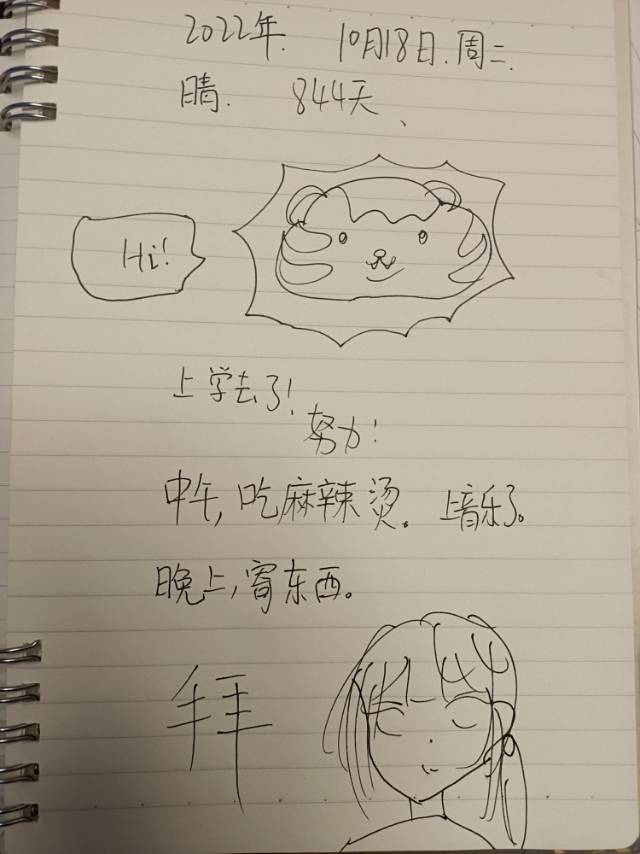 2022年. 10月18日.周二.
晴. 844天、
Hi!
上学去了!
努力!
中午,吃麻辣烫。上音乐了。
晚上,寄东西。
拜